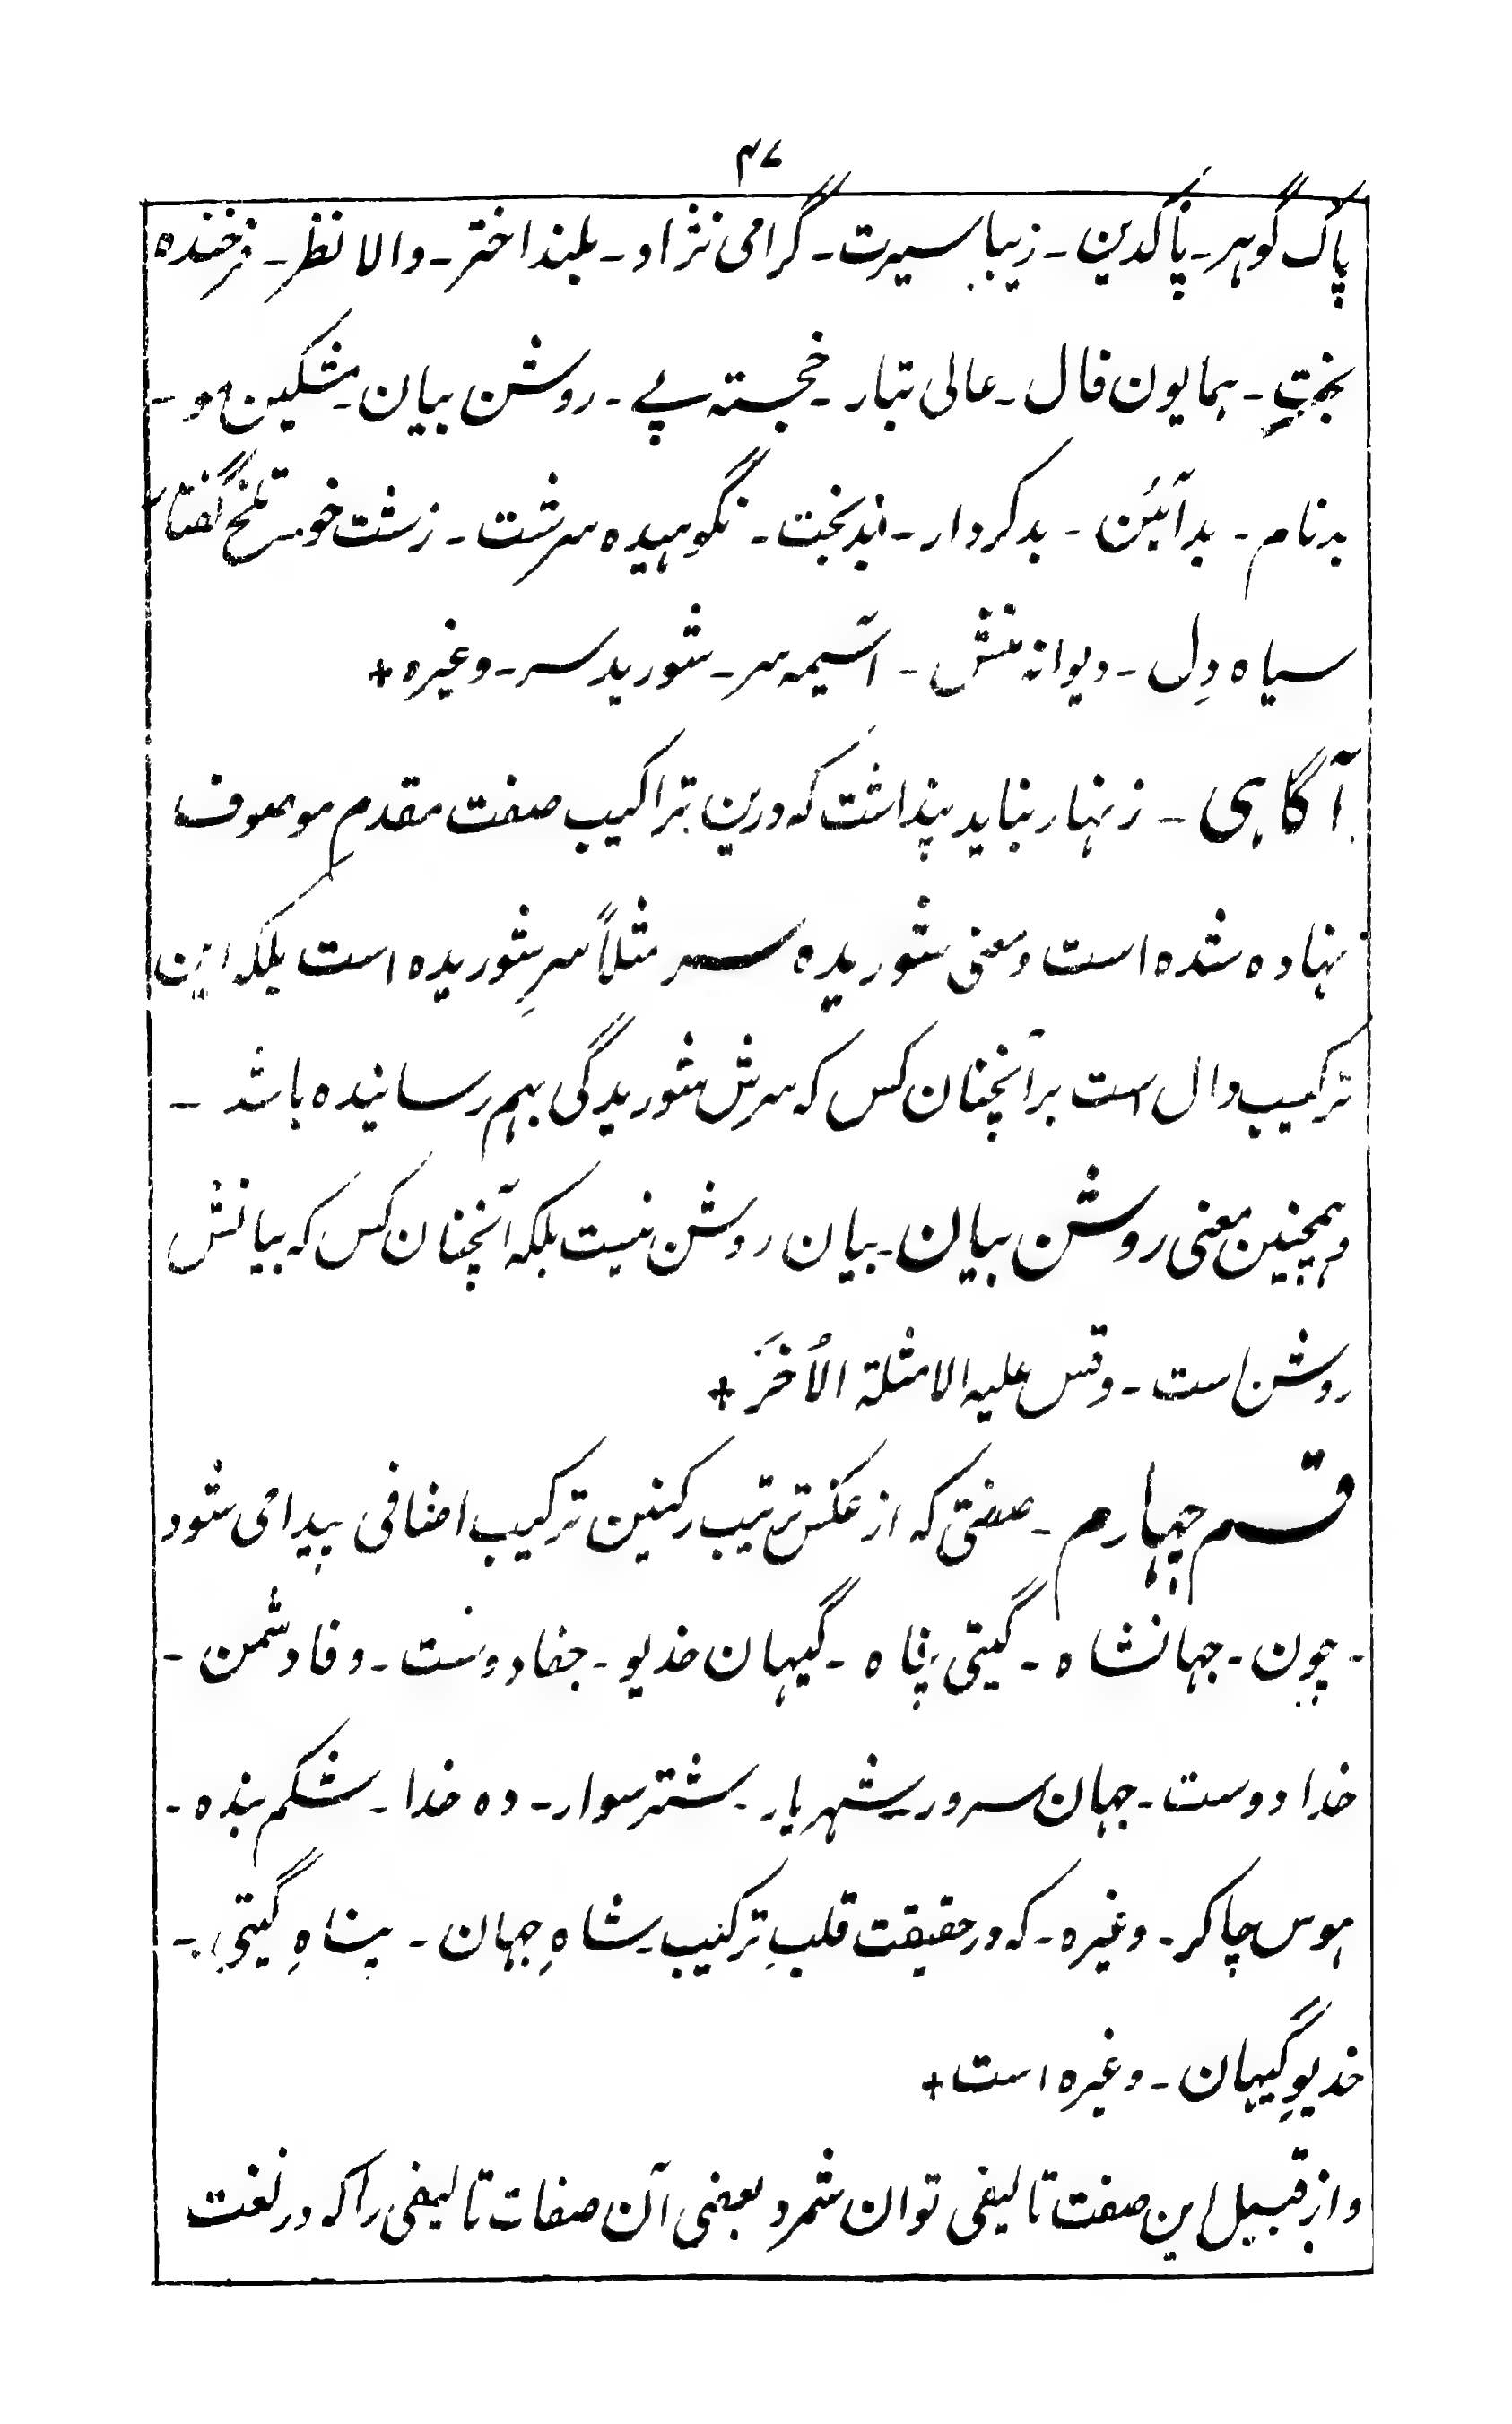 ۴۷
پاک گوہر۔ پاکدین۔ زیبا سیرت۔ گرامی نژاد۔ بلند اختر۔ والا نظر۔ فرخنده
بخت۔ ہمایون فال۔ عالی تبار۔ خجستہ پے۔ روشن بیان۔ مشکین مو۔
بدنام۔ بد آئین۔ بدکردار۔ بدبخت۔ نگوہیدہ سرشت۔ زشت خو۔ تلخ گفتار
سیاہ دِل۔ دیوانہ منش۔ آسیمہ سر۔ شوریدہ سر۔ وغیرہ +
آگاہی۔ زنہار نباید پنداشت کہ درین تراکیب صفت مقدم موصوف
نہادہ شدہ است و معنی شوریدہ سر مثلاً سرِ شوریدہ است بلکہ این
ترکیب دال است بر آنچنان کس کہ سرش شوریدگی بہم رسانیدہ باشد۔
وہمچنین معنی روشن بیان۔ بیان روشن نیست بلکہ آنچنان کس کہ بیانش
روشن است۔ وقس علیہ الامثلۃ الاُخَرَ +
قسم چہارم۔ صفتی کہ از عکس ترتیب رکنین ترکیب اضافی پیدا می شود
۔ چون۔ جہانشاہ۔ گیتی پناہ۔ گیہان خدیو۔ جفا دوست۔ وفا دشمن۔
خدا دوست۔ جہان سرور۔ شہریار۔ شتر سوار۔ دہ خدا۔ شکم بندہ۔
ہوس چاکر۔ وغیرہ۔ کہ در حقیقت قلبِ ترکیب۔ شاہِ جہان۔ پناہِ گیتی۔
خدیوِ گیہان۔ وغیرہ است +
و از قبیل این صفت تالیفی توان شمرد بعضی آن صفات تالیفی را کہ در لغت